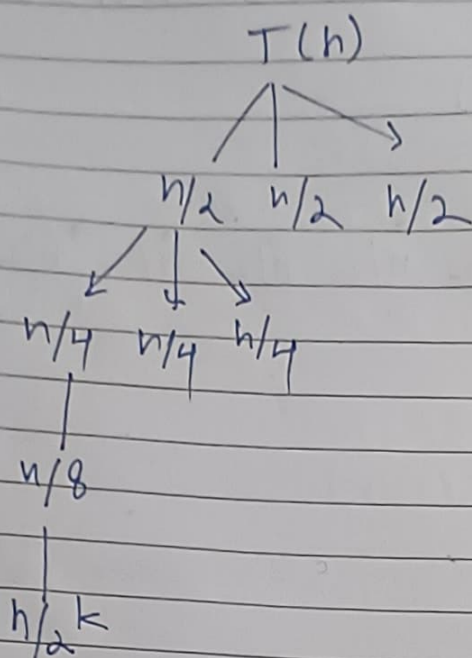 T(n)
n/2 n/2 n/2
n/4 n/4 n/4
n/8
n/2k